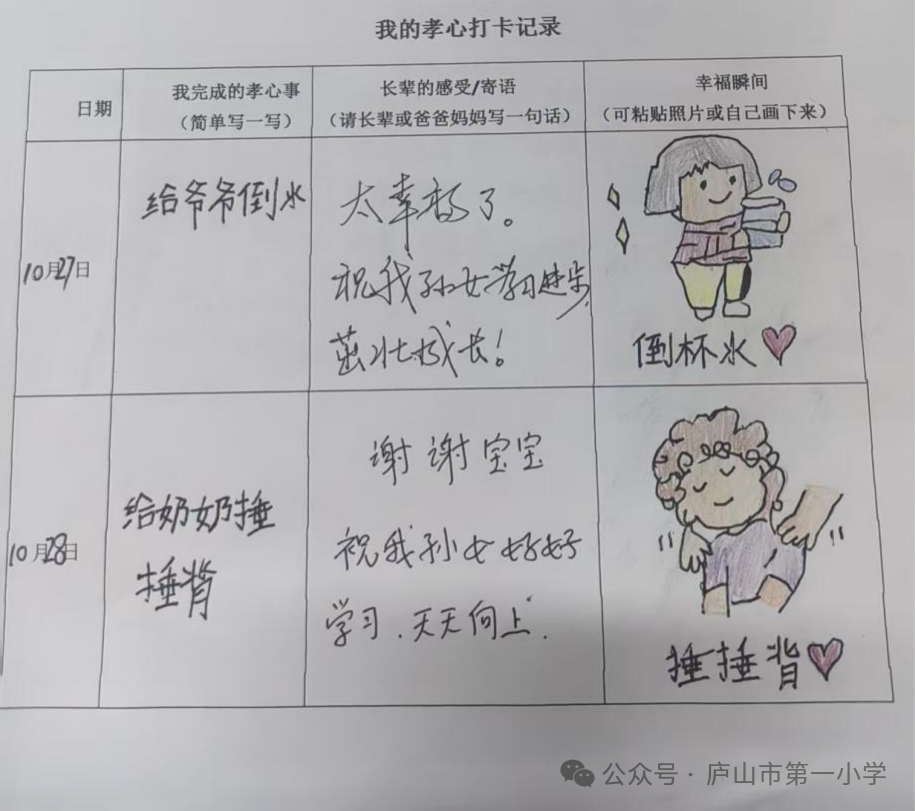 我的孝心打卡记录
日期
我完成的孝心事
（简单写一写）
长辈的感受/寄语
（请长辈或爸爸妈妈写一句话）
幸福瞬间
（可粘贴照片或自己画下来）
10月27日
给爷爷倒水
太幸福了。
祝我孙女学习进步,
茁壮成长！
倒杯水
10月28日
给奶奶捶
捶背
谢谢宝宝
祝我孙女好好
学习.天天向上.
捶捶背
公众号·庐山市第一小学